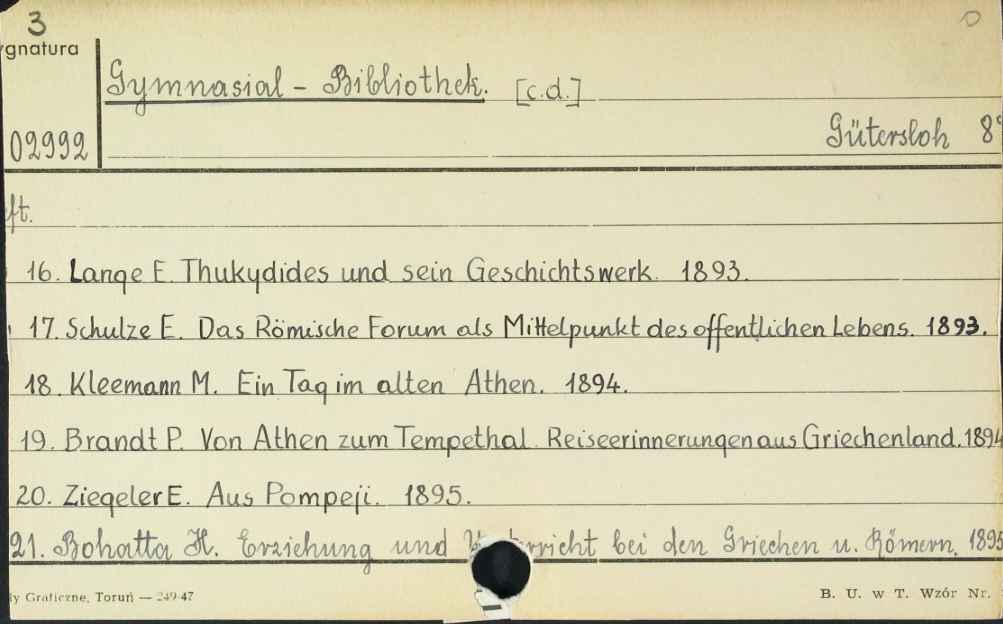 3
ygnatura
Gymnasial - Bibliothek. [c.d.]
02992
Gütersloh 8°
ft.
16. Lange E. Thukydides und sein Geschichtswerk. 1893.
17. Schulze E. Das Römische Forum als Mittelpunkt des offentlichen Lebens. 1893.
18. Kleemann M. Ein Tag im alten Athen. 1894.
19. Brandt P. Von Athen zum Tempethal. Reiseerinnerungen aus Griechenland. 1894
20. Ziegeler E. Aus Pompeji. 1895.
21. Bohatta H. Erziehung und bei den Griechen u. Römern. 1895
y Graficzne, Toruń — 249-47
B. U. w T. Wzór Nr.